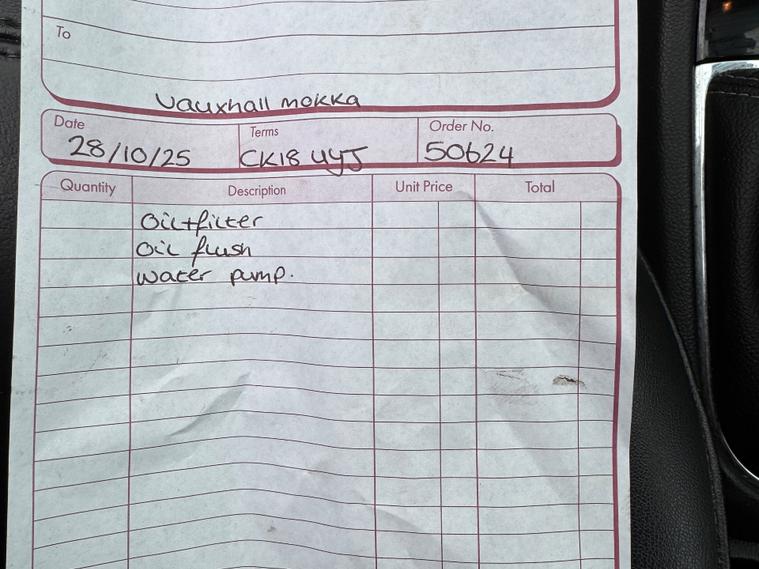 To
Vauxhall mokka
Date Terms Order No.
28/10/25 CK18 UYJ 50624
Quantity Description Unit Price Total
Oil+filter
Oil flush
Water pump.